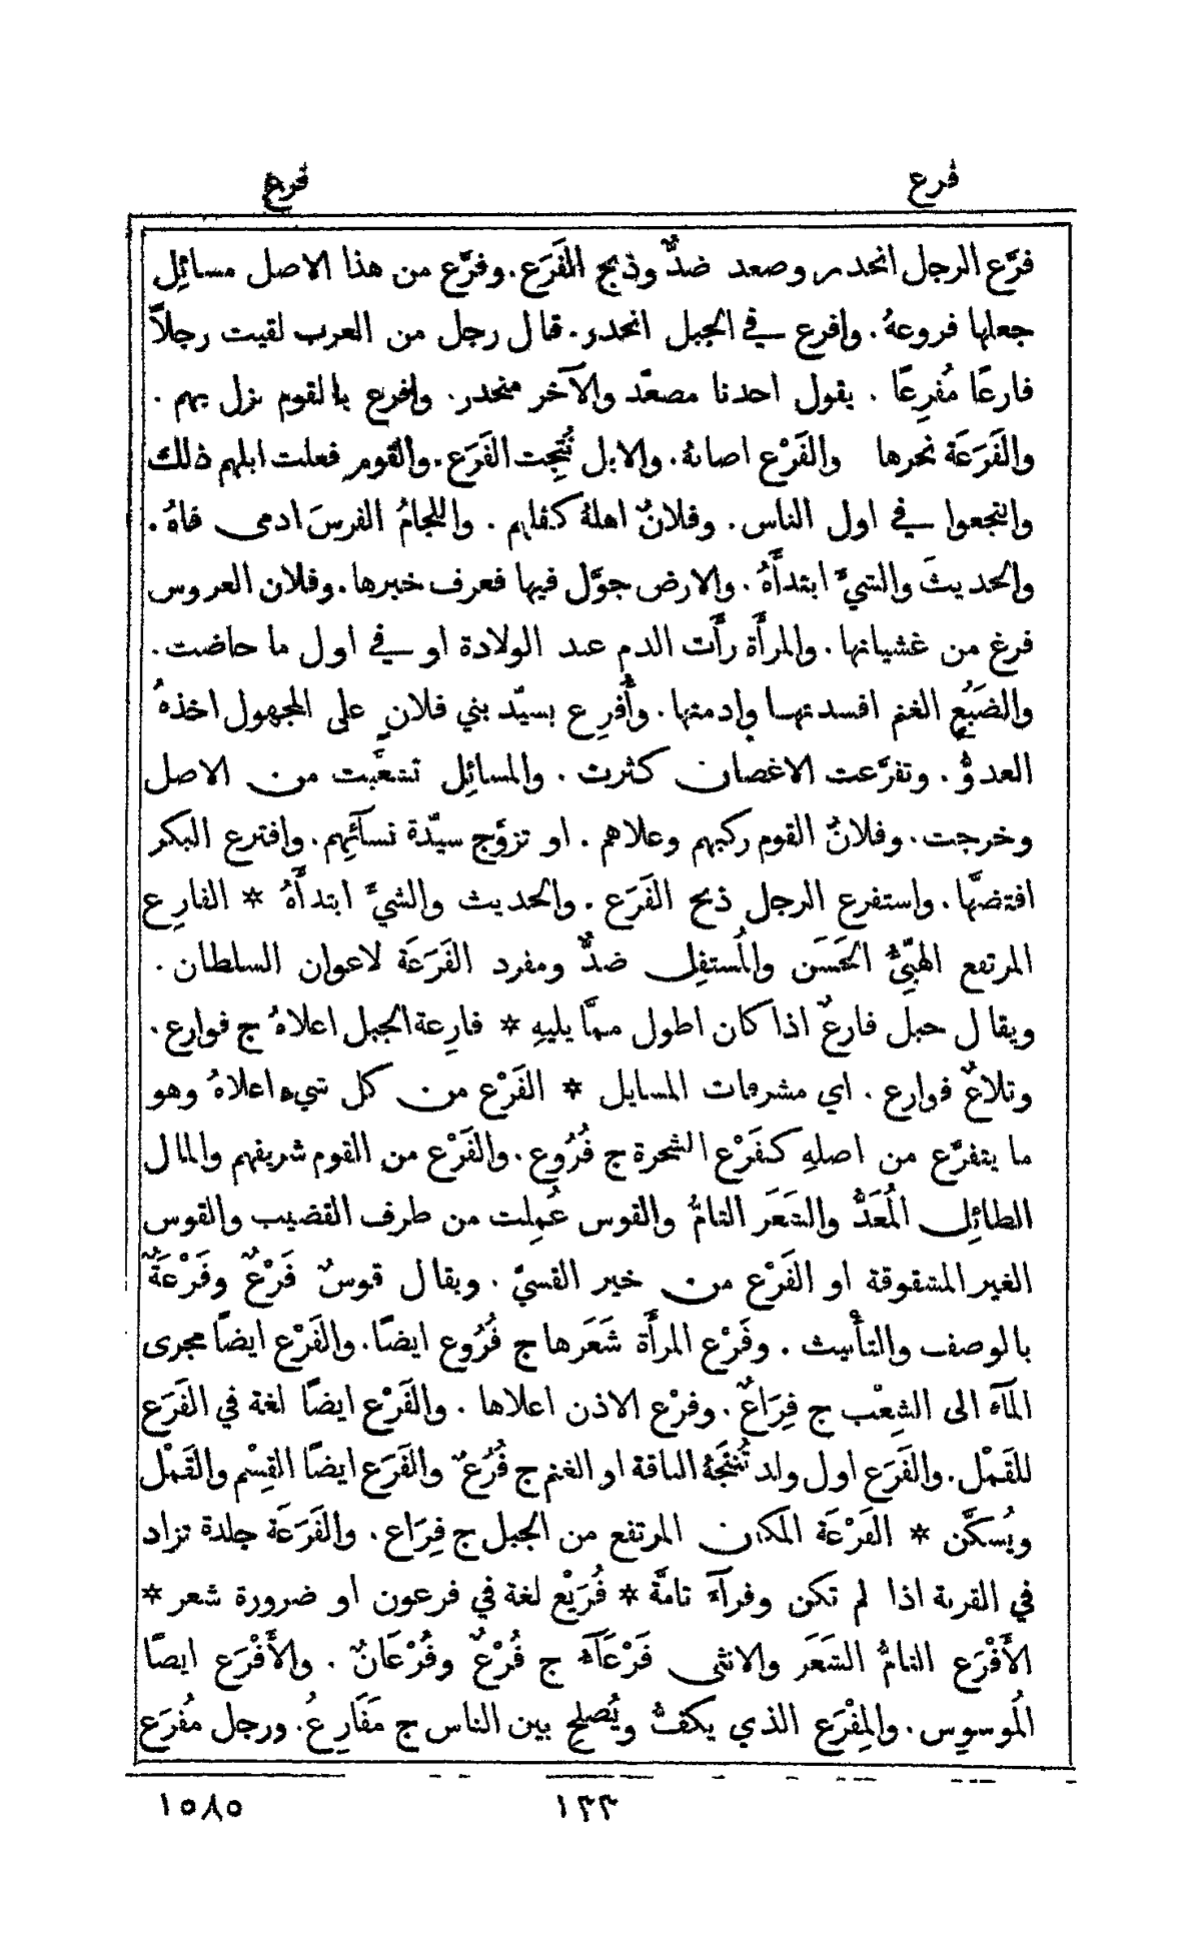 فرع فرع
فرَّع الرجل انحدر وصعد ضدٌّ وذبح الفَرَع. وفرَّع من هذا الاصل مسائِل
جعلها فروعهُ. وافرع في الجبل انحدر. قال رجل من العرب لقيت رجلاً
فارعًا مُفرِعًا. يقول احدنا مصعّد والآخر منحدر. وافرع بالقوم نزل بهم.
والفَرَعَة نحرها والفَرْع اصابهُ. والابل نُتِجت الفَرَع. والقوم فعلت ابلهم ذلك
وانتجعوا في اول الناس. وفلانٌ اهلهُ كفلهم. واللجامُ الفرسَ ادمى فاهُ.
والحديثَ والشيءَ ابتدأَهُ. والارض جوَّل فيها فعرف خبرها. وفلان العروس
فرغ من غشيانها. والمرأَة رأَت الدم عند الولادة او في اول ما حاضت.
والضَبُع الغنم افسدتها وادمتها. وأُفرِع بسيّد بني فلانٍ على المجهول اخذهُ
العدوُّ. وتفرَّعت الاغصان كثرت. والمسائِل تشعَّبت من الاصل
وخرجت. وفلانٌ القوم ركبهم وعلاهم. او تزوَّج سيّدة نسآئهم. وافترع البكر
افتضَّها. واستفرع الرجل ذبح الفَرَع. والحديث والشيءَ ابتدأَهُ * الفارِع
المرتفع الهيِّئُ الحَسَن والمُستفِل ضدٌّ ومفرد الفَرَعَة لاعوان السلطان.
ويقال جبل فارعٌ اذا كان اطول ممَّا يليهِ * فارِعة الجبل اعلاهُ ج فوارع.
وتلاعٌ فوارع. اي مشرفات المسايل * الفَرْع من كل شيء اعلاهُ وهو
ما يتفرَّع من اصلهِ كفَرْع الشجرة ج فُرُوع. والفَرْع من القوم شريفهم والمال
الطائِل المُعَدُّ والشَعَر التامُّ والقوس عُمِلت من طرف القضيب والقوس
الغير المشقوقة او الفَرْع من خير القسيّ. ويقال قوسٌ فَرْعٌ وفَرْعَةٌ
بالوصف والتأنيث. وفَرْع المرأَة شَعَرها ج فُرُوع ايضًا. والفَرْع ايضًا مجرى
المآء الى الشِعْب ج فِرَاعٌ. وفرْع الاذن اعلاها. والفَرْع ايضًا لغة في الفَرَع
للقَمْل. والفَرَع اول ولد تُنتَجهُ الناقة او الغنم ج فُرُعٌ والفَرَع ايضًا القِسْم والقَمْل
ويُسكَّن * الفَرْعَة المكان المرتفع من الجبل ج فِرَاع. والفَرَعَة جلدة تزاد
في القربة اذا لم تكن وفرآء تامَّة * فُرَيْع لغة في فرعون او ضرورة شعر *
الأَفْرَع التامُّ الشَعَر والانثى فَرْعَآء ج فُرْعٌ وفُرْعَانٌ. والأَفْرَع ايضًا
المُوسوِس. والمِفْرَع الذي يكفُّ ويُصلِح بين الناس ج مَفَارِعُ. ورجل مُفرَع
١٥٨٥ ١٣٣